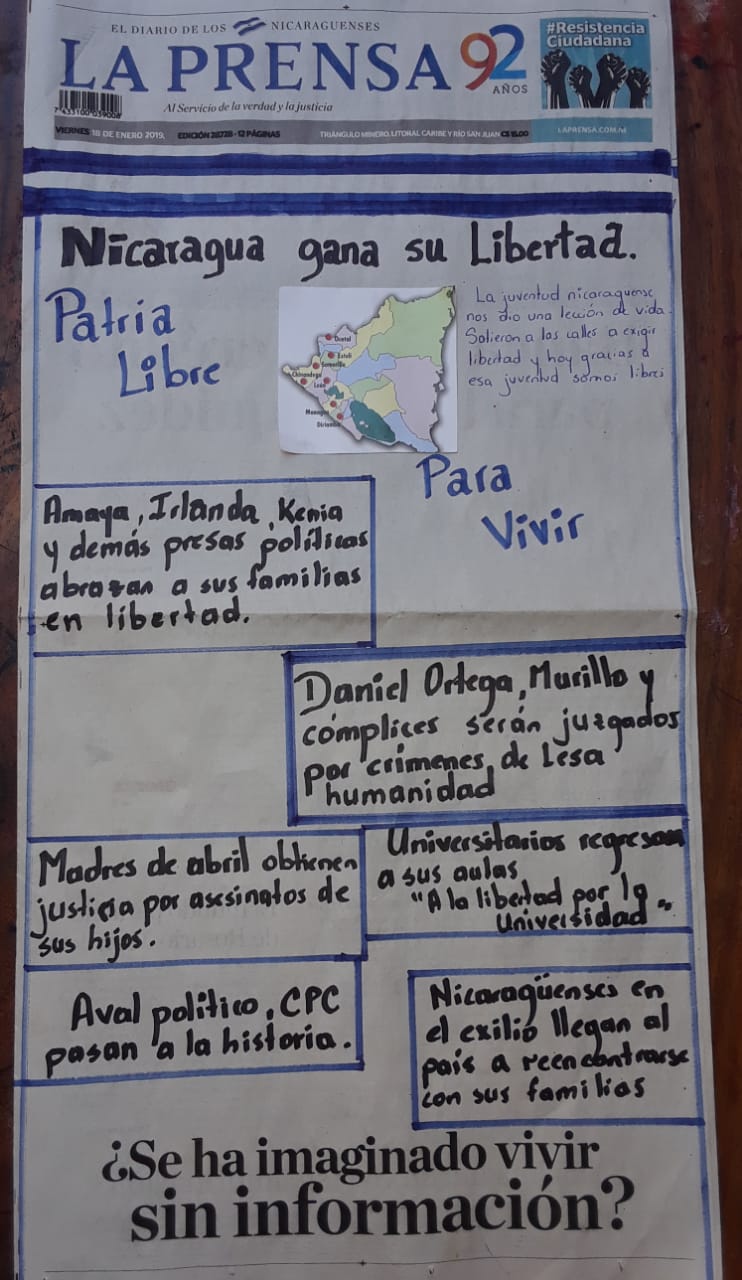 EL DIARIO DE LOS NICARAGÜENSES
LA PRENSA 92
AÑOS
Al Servicio de la verdad y la justicia
#Resistencia
Ciudadana
VIERNES 18 DE ENERO 2019, EDICIÓN 28728 - 12 PÁGINAS TRIÁNGULO MINERO, LITORAL CARIBE Y RÍO SAN JUAN C$ 15.00
LAPRENSA.COM.NI
Nicaragua gana su Libertad.
Patria
Libre
La juventud nicaraguense
nos dio una lección de vida.
Salieron a las calles a exigir
libertad y hoy gracias a
esa juventud somos libres
Ocotal
Estelí
Somotillo
Chinandega
León
Managua
Diriamba
Para
Vivir
Amaya, Irlanda, Kenia
y demás presas políticas
abrazan a sus familias
en libertad.
Daniel Ortega, Murillo y
cómplices serán juzgados
por crímenes de Lesa
humanidad
Madres de abril obtienen
justicia por asesinatos de
sus hijos.
Universitarios regresan
a sus aulas
"A la libertad por la
Universidad"
Aval político, CPC
pasan a la historia.
Nicaragüenses en
el exilio llegan al
país a reencontrarse
con sus familias
¿Se ha imaginado vivir
sin información?